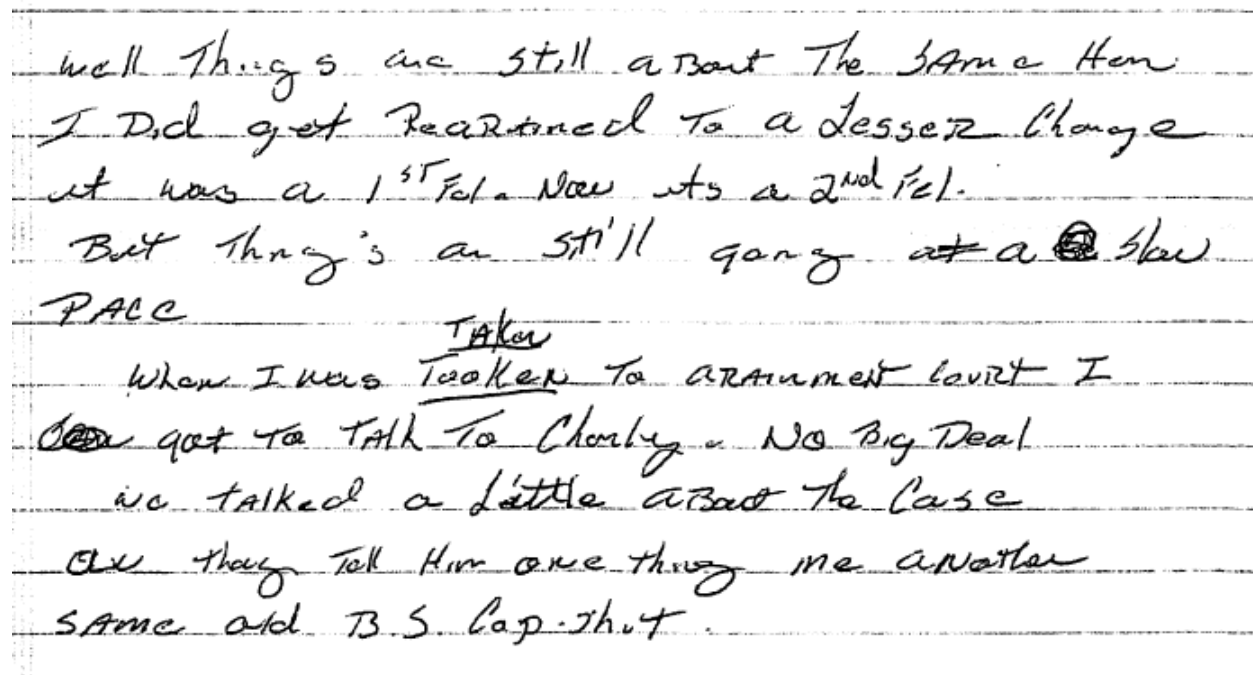 well Things are still aBout The SAme Her
I Did get ReaRained To a Lesser Change
it was a 1ST Fel. Now its a 2Nd Fel.
But Thing's are still gong at a slow
PACE
TAken
When I was TooKen To ARAinment Court I
got To TAlk To Charley. No Big Deal
we tAlked a Little aBout The Case
they Tell Him one thing me aNother
SAme old B.S. Cap-Shit.